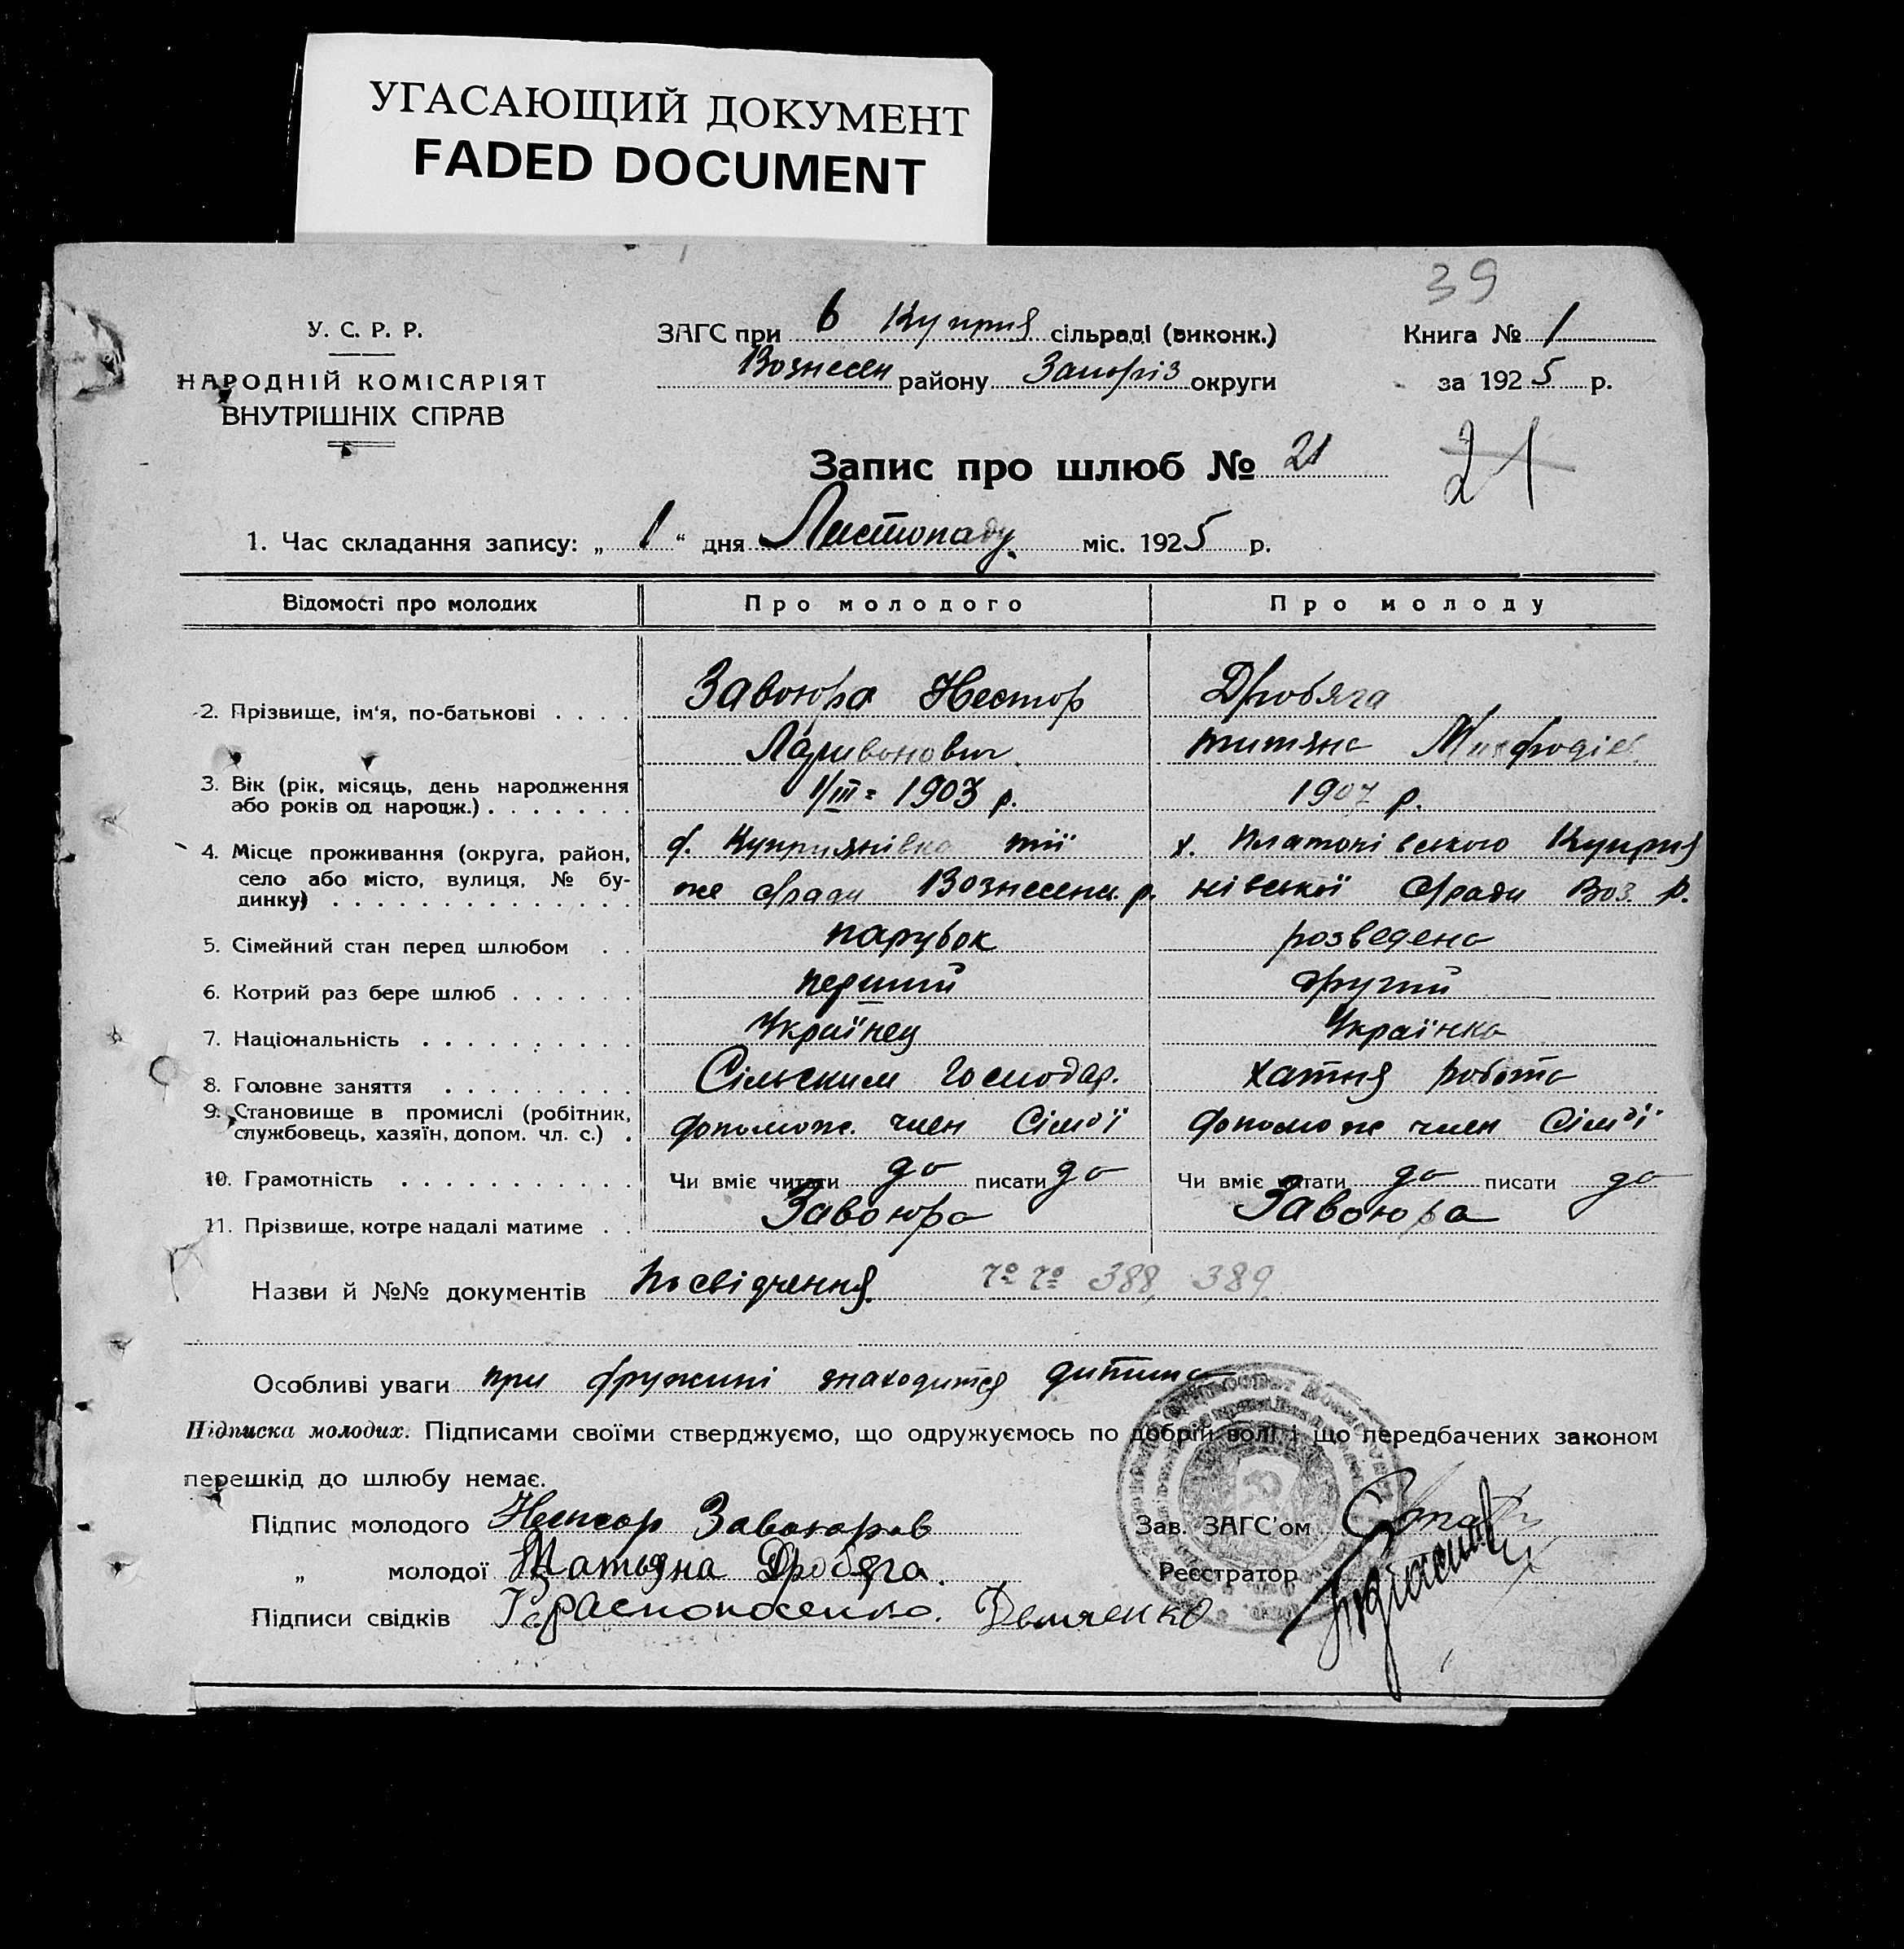 УГАСАЮЩИЙ ДОКУМЕНТ
FADED DOCUMENT
39
У. С. Р. Р.
НАРОДНІЙ КОМІСАРІЯТ
ВНУТРІШНІХ СПРАВ
ЗАГС при Куприя сільраді (виконк.)
Вознесен району Запоріз округи
Книга № 1
за 1925 р.
Запис про шлюб № 21
21
1. Час складання запису: „ 1 “ дня Листопаду міс. 1925 р.
Відомості про молодих Про молодого Про молоду
2. Прізвище, ім'я, по-батькові . . . . Завоюра Нестор Дробяга
Ларивонович титяна
3. Вік (рік, місяць, день народження
або років од народж.) . . . . . . . 1/III = 1903 р. 1907 р.
4. Місце проживання (округа, район, с. Куприянівка тії х. Платонівського Куприя
село або місто, вулиця, № бу-
динку) . . . . . . . . . . . . . . же с/ради Вознесенс. р. нівської с/ради Воз. р.
5. Сімейний стан перед шлюбом . . парубок розведена
6. Котрий раз бере шлюб . . . . . . перший другий
7. Національність . . . . . . . . . . Українец Українка
8. Головне заняття . . . . . . . . . Сільским господар. хатня робота
9. Становище в промислі (робітник,
службовець, хазяїн, допом. чл. с.) . допомож. член сімї допомож член сімї
10. Грамотність . . . . . . . . . . . Чи вміє читати да писати да Чи вміє читати да писати да
11. Прізвище, котре надалі матиме . . Завоюра Завоюра
Назви й №№ документів посвідчення № № 388, 389
Особливі уваги при дружині знаходится дитина
Підписка молодих. Підписами своїми стверджуємо, що одружуємось по добрій волі і що передбачених законом
перешкід до шлюбу немає.
Підпис молодого Нестор Завоюров
Зав. ЗАГС'ом
„ молодої Татьяна Дробяга.
Реєстратор
Підписи свідків Демченко